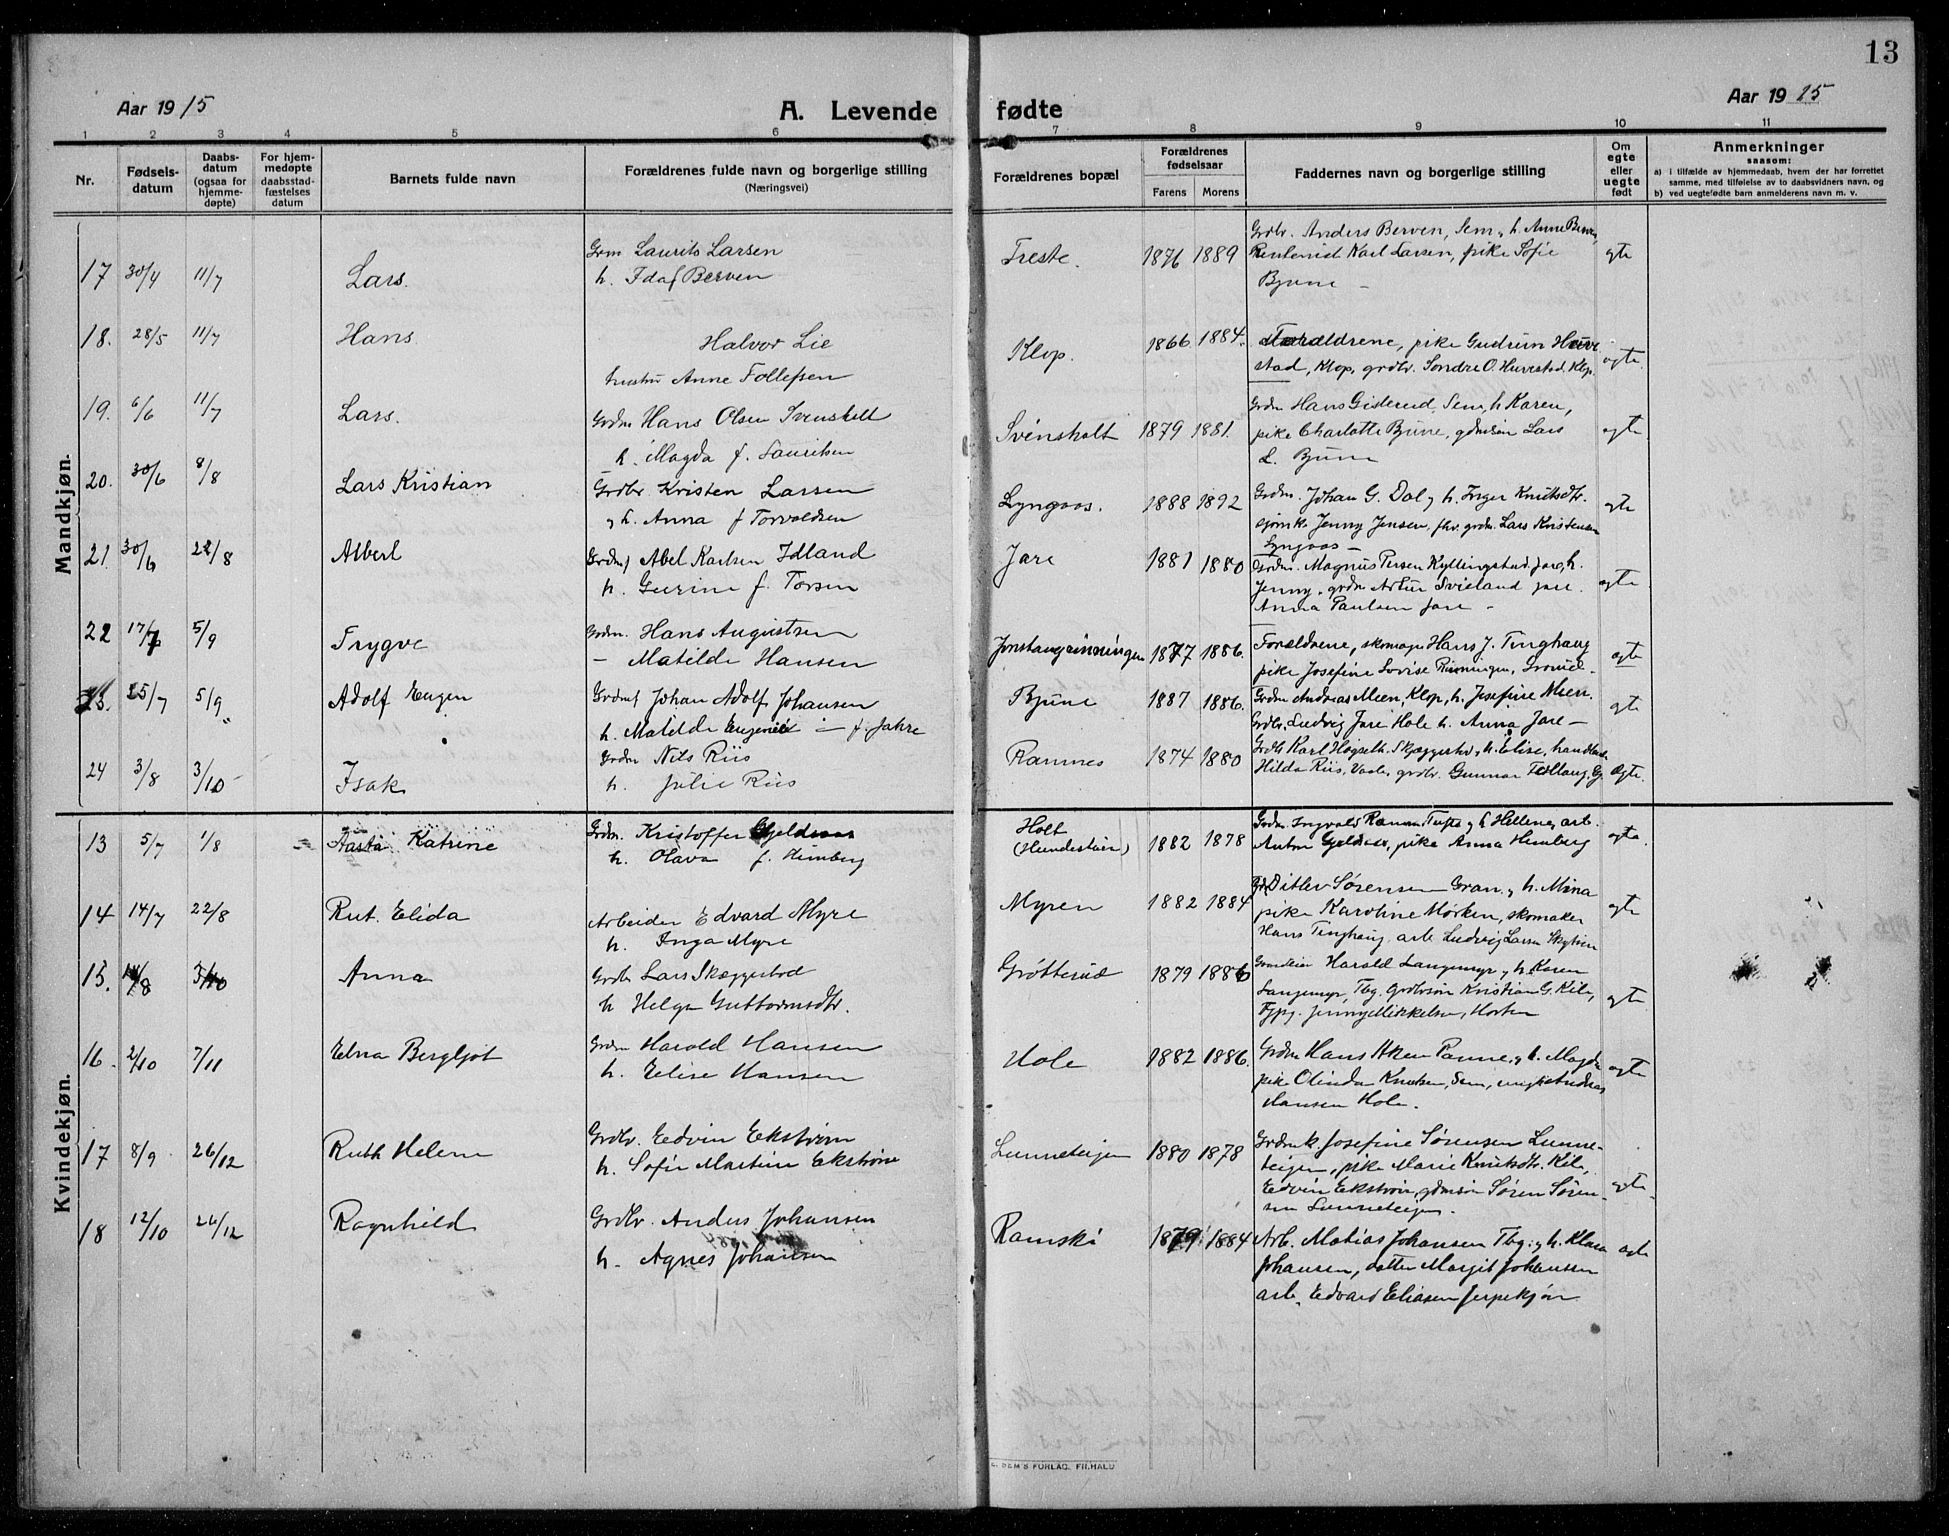 13
Aar 1915
A. Levende fødte
Aar 1915
1 2 3 4 5 6 7 8 9 10 11
Nr.
Fødsels-
datum
Daabs-
datum
(ogsaa for
hjemme-
døpte)
For hjem-
medøpte
daabsstad-
fæstelses
datum
Barnets fulde navn
Forældrenes fulde navn og borgerlige stilling
(Næringsvei)
Forældrenes bopæl
Forældrenes
fødselsaar
Farens Morens
Faddernes navn og borgerlige stilling
Om
egte
eller
uegte
født
Anmerkninger
saasom:
a) i tilfælde av hjemmedaab, hvem der har forrettet
samme, med tilføielse av to daabsvidners navn, og
b) ved uegtefødte barn anmelderens navn m. v.
Mandkjøn.
17 30/4 11/7 Lars.
Grm Laurits Larsen
h. Ida f Berven
Treste. 1876 1889
Grdbr. Anders Berven, Sem, h. Anne Berven,
Karl Larsen, pike Sofie
Bjune –
egte
18. 28/5 11/7 Hans
Halvor Lie
hustru Anne Follefsen
Klop. 1866 1884.
Forældrene, pike Gudrun Huve
stad, Klop, grdbr. Sondre O. Huvestad, Klop.
egte.
19. 6/6 11/7 Lars.
Grdm Hans Olsen Svensholt
h. Magda f. Lauritsen
Svensholt 1879 1881.
Grdm Hans Gislerud, Sem, h Karen,
pike Charlotte Bjune, gdmsøn Lars
L. Bjune
egte
20. 30/6 8/8 Lars Kristian
Grdbr. Kristen Larsen
og h. Anna f Torvaldsen
Lyngaas. 1888 1892
Grdm. Johan G. Dal og h. Inger Knutsdtr.
Jenny Jensen, fhv. grdm. Lars Kristensen
Lyngaas –
egte
21. 30/6 22/8 Albert
Grdm f Abel Karlsen Idland
h. Gurine f. Torsen
Jare 1881 1880
Grdm. Magnus Persen Kyllingstad Jare, h.
Jenny, grdm Artur Svieland Jare.
Anna Paulsen Jare –
egte
22 17/7 5/9 Trygve
Grdm. Hans Augustsen
– Matilde Hansen
1877 1886.
Forældrene, skomager Hans J. Tinghaug
pike Josefine Lovise Rinningen,
egte
23. 25/7 5/9 Adolf Eugen
Grdm f Johan Adolf Johansen
h. Matilde Eugenie – f. Jahre
Bjune 1887 1886.
Grdm Andreas Moen, Klop, h. Josefine Moen.
Grdbr. Ludvig Jare Hole h. Anna Jare –
egte
24 3/8 3/10 Isak
Grdm Nils Riis
h. Julie Riis
Ramnes 1874 1880
Grdb Karl Høgseth, Skjeggestad, h. Elise,
Hilda Riis, Vaale, grdbr. Gunnar
egte.
Kvindekjøn.
13 5/7 1/8 Aasta Katrine
Grdm. Kristoffer Gjeldsaas
h. Olava f. Himberg
Holt
1882 1878
Grdm. Ingvald Tufte og h Hellene, arb.
Anton Gjeldsaas, pike Anna Himberg
egte.
14 14/7 22/8 Rut Elida
Arbeider Edvard Myre
h. Inga Myre
Myren 1882 1884
Ditlev Sørensen Gran, og h. Mina
pike Karoline Mørken, skomaker
Hans Tinghaug, arb Ludvig Larsen
egte
15. Anna
Grdbr Lars Skeggestad
h Helga Guttormsdtr.
Grøtterud 1879 1886
Harald Langemyr og h. Karen
Langemyr, Tbg. Grdbrsøn Kristian G. Kile,
Jenny Mikkelsen, Horten
egte
16. 2/10 7/11 Edna Bergljot
Grdm Harald Hansen
h. Elise Hansen
Hole 1882 1886.
Grdm Hans Aken Panne, og h. Magda
pike Olinda Knutsen, Sem, ungkar Andreas
Hansen Hole.
egte
17 8/9 26/12 Ruth Helene
Grdbr. Edvin Ekstrøm
h. Sofie Martine Ekstrøm
Lunneteigen 1880 1878
Grdmk. Josefine Sørensen Lunne-
teigen, pike Marie Knutsdtr. Kile,
Edvin Ekstrøm, gdmsøn Søren Søren-
sen Lunneteigen.
egte
18 12/10 26/12 Ragnhild
Grdbr. Anders Johansen
h. Agnes Johansen
Ramski 1879 1884
Arb. Matias Johansen Tbg. og h. Klara
Johansen, datter Margit Johansen
arb. Edvard Eliasen Jerpekjøn
egte
SEM'S FORLAG, FR.HALD